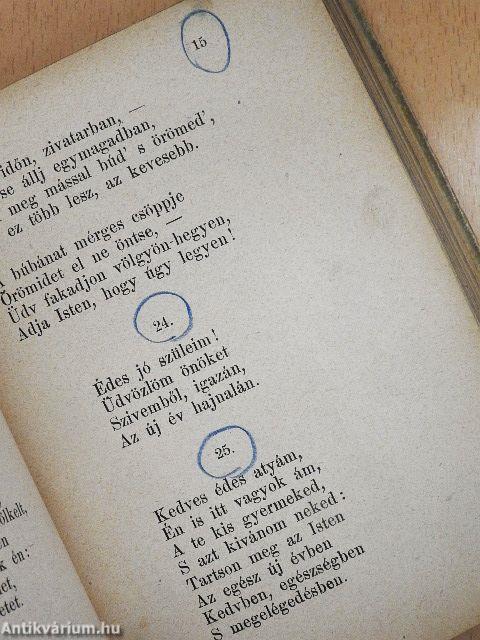 15
időn, zivatarban, —
se állj egymagadban,
meg mással búd' s örömed',
ez több lesz, az kevesebb.
A búbánat mérges csöppje
Örömidet el ne öntse, —
Üdv fakadjon völgyön-hegyen,
Adja Isten, hogy úgy legyen!
24.
Édes jó szüleim!
Üdvözlöm önöket
Szivemből, igazán,
Az új év hajnalán.
25.
Kedves édes atyám,
Én is itt vagyok ám,
A te kis gyermeked,
S azt kivánom neked:
Tartson meg az Isten
Az egész új évben
Kedvben, egészségben
S megelégedésben.
én:
Antikvárium.hu